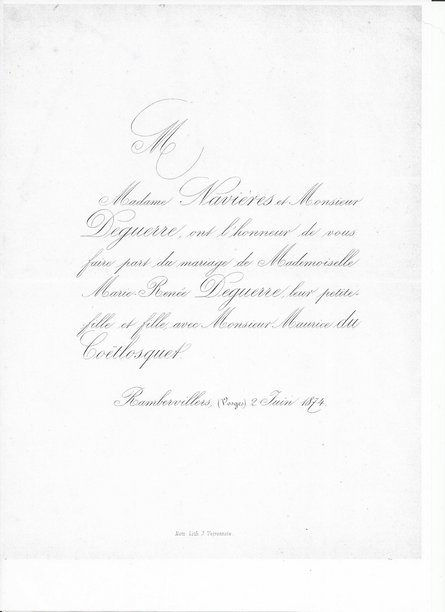 M
Madame Navières et Monsieur
Deguerre, ont l'honneur de vous
faire part du mariage de Mademoiselle
Marie-Renée Deguerre, leur petite-
fille et fille, avec Monsieur Maurice du
Coëtlosquet
Rambervillers, (Vosges) 2 Juin 1874.
Metz Lith. J.